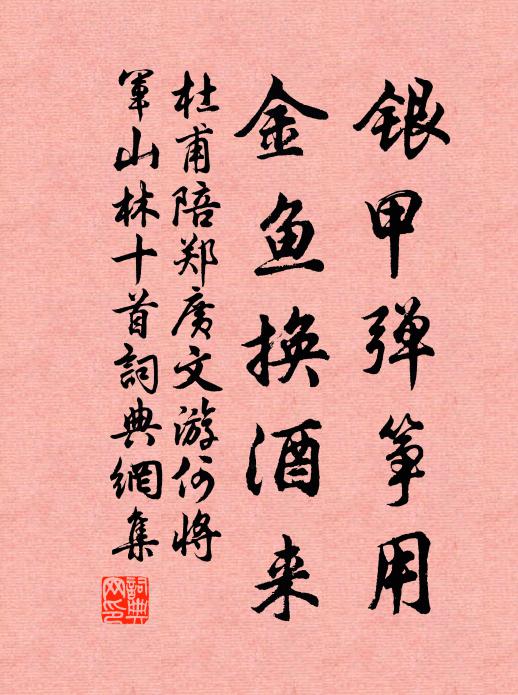 银甲弹筝用
金鱼换酒来
杜甫陪郑广文游何将
军山林十首詞典網集
詞典網印